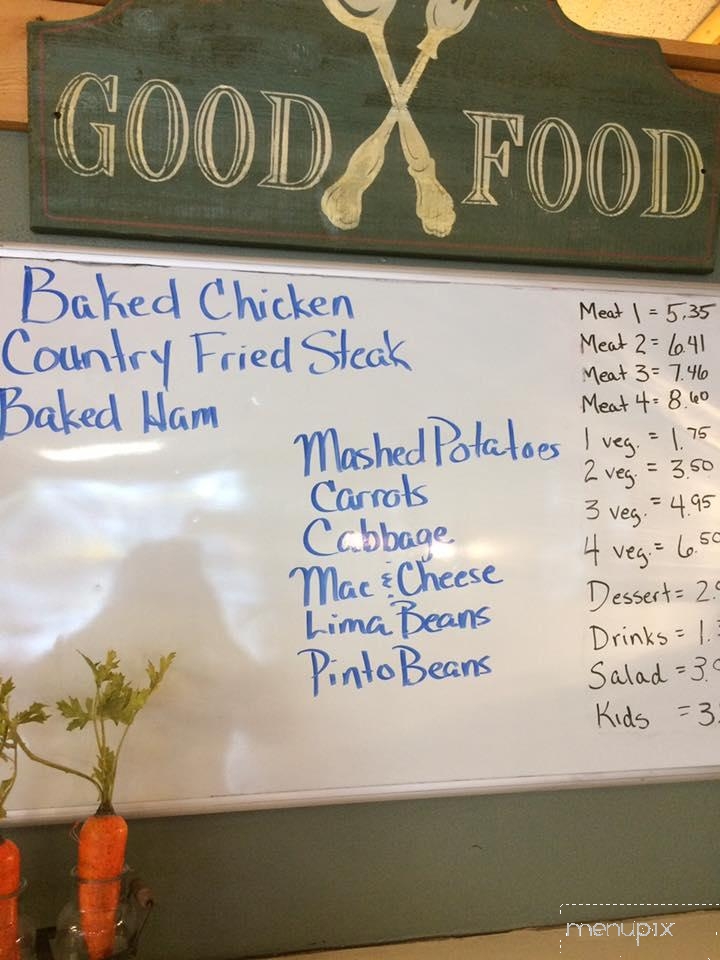 GOOD FOOD
Baked Chicken
Country Fried Steak
Baked Ham
Mashed Potatoes
Carrots
Cabbage
Mac & Cheese
Lima Beans
Pinto Beans
Meat 1 = 5.35
Meat 2 = 6.41
Meat 3 = 7.46
Meat 4 = 8.60
1 veg. = 1.75
2 veg. = 3.50
3 veg. = 4.95
4 veg. = 6.50
Dessert = 2.
Drinks = 1.
Salad = 3.
Kids = 3.
menupix